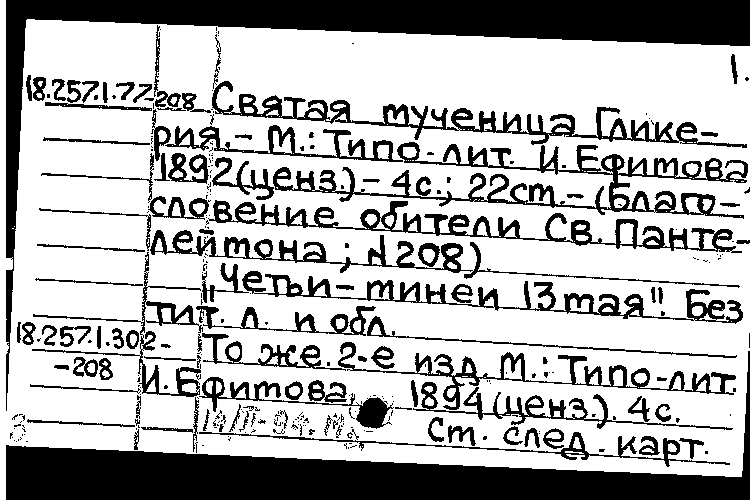 1.
18.257.1.77-208 Святая мученица Глике-
рия.- М.: Типо-лит. И.Ефимова
1892(ценз.).- 4с.; 22см.- (Благо-
словение обители Св. Панте-
леймона; №208)
"Четьи-минеи 13 мая". Без
тит. л. и обл.
18.257.1.302-
-208
То же. 2-е изд. М.: Типо-лит.
И.Ефимова, 1894(ценз.). 4с.
См. след. карт.